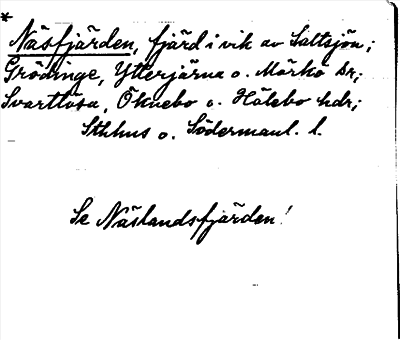 *
Näsfjärden, fjärd i vik av Saltsjön;
Grödinge, Ytterjärna o. Mörkö snr;
Svartlösa, Öknebo o. Hölebo hdr;
Sthlms o. Södermanl. l.
Se Näslandsfjärden!